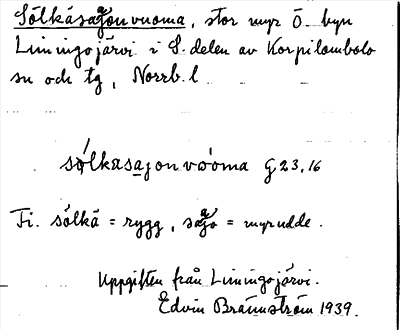 Sölkäsajonvuoma, stor myr Ö byn
Liiningojärvi i S. delen av Korpilombolo
sn och tg, Norrb. l
sölkäsajonvuoma G 23,16
Fi. sölkä = rygg, sajo = myrudde.
Uppgiften från Liiningojärvi.
Edvin Brännström 1939.